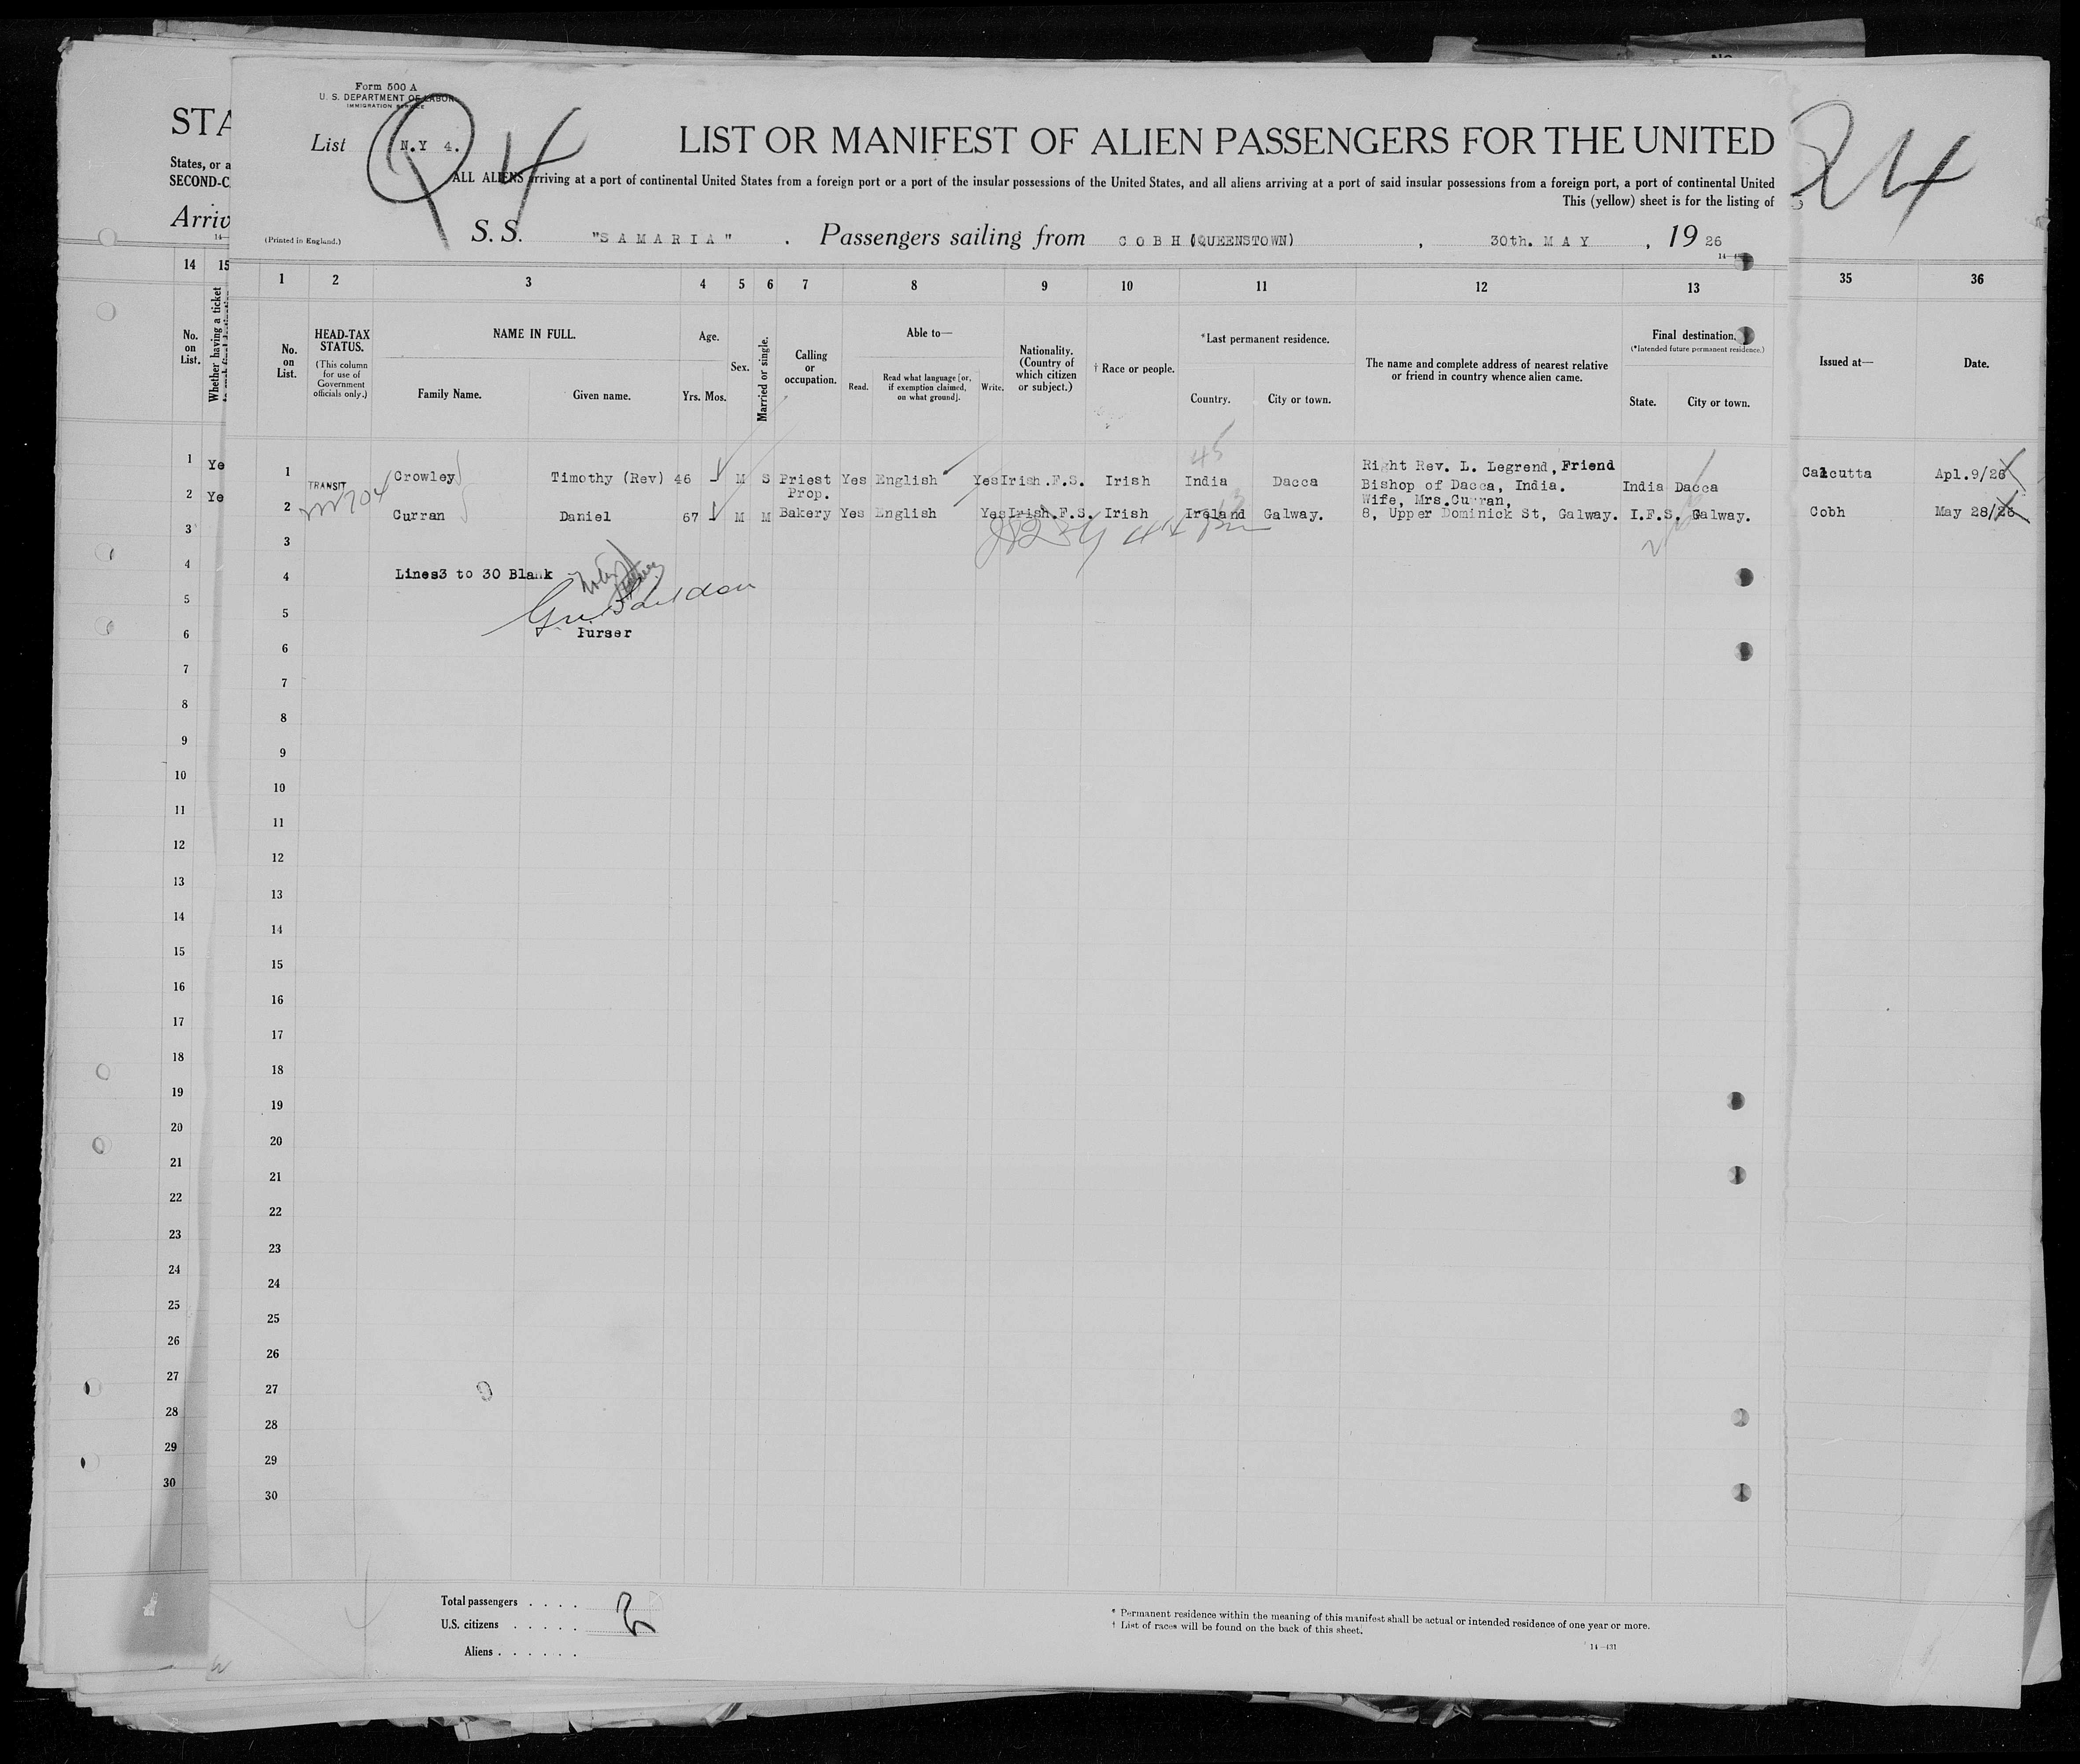 Form 500 A
U. S. DEPARTMENT OF LABOR
IMMIGRATION SERVICE
List N.Y 4.
LIST OR MANIFEST OF ALIEN PASSENGERS FOR THE UNITED
ALL ALIENS arriving at a port of continental United States from a foreign port or a port of the insular possessions of the United States, and all aliens arriving at a port of said insular possessions from a foreign port, a port of continental United
This (yellow) sheet is for the listing of
(Printed in England.)
S. S. "SAMARIA" . Passengers sailing from COBH (QUEENSTOWN) , 30th. MAY , 19 26
STA
States, or a
SECOND-C
Arriv
24
14 15
No. on List.
Whether having a ticket
1 2 3 4 5 6 7 8 9 10 11 12 13
35 36
No. on List.
HEAD-TAX STATUS.
(This column for use of Government officials only.)
NAME IN FULL.
Family Name. Given name.
Age.
Yrs. Mos.
Sex.
Married or single.
Calling or occupation.
Able to—
Read.
Read what language [or, if exemption claimed, on what ground].
Write.
Nationality. (Country of which citizen or subject.)
† Race or people.
*Last permanent residence.
Country. City or town.
The name and complete address of nearest relative or friend in country whence alien came.
Final destination.
(*Intended future permanent residence.)
State. City or town.
Issued at— Date.
1 Ye
2 Ye
3
4
5
6
7
8
9
10
11
12
13
14
15
16
17
18
19
20
21
22
23
24
25
26
27
28
29
30
45
Right Rev. L. Legrend, Friend
1 TRANSIT Crowley Timothy (Rev) 46 M S Priest Yes English Yes Irish.F.S. Irish India Dacca Bishop of Dacca, India. India Dacca Calcutta Apl.9/26
Prop. Wife, Mrs.Curran,
2 Curran Daniel 67 M M Bakery Yes English Yes Irish.F.S. Irish Ireland Galway. 8, Upper Dominick St, Galway. I.F.S. Galway. Cobh May 28/26
3
4 Lines3 to 30 Blank
5
Purser
6
7
8
9
10
11
12
13
14
15
16
17
18
19
20
21
22
23
24
25
26
27
28
29
30
Total passengers . . . .
U.S. citizens . . . . .
Aliens . . . . . .
* Permanent residence within the meaning of this manifest shall be actual or intended residence of one year or more.
† List of races will be found on the back of this sheet.
14—431